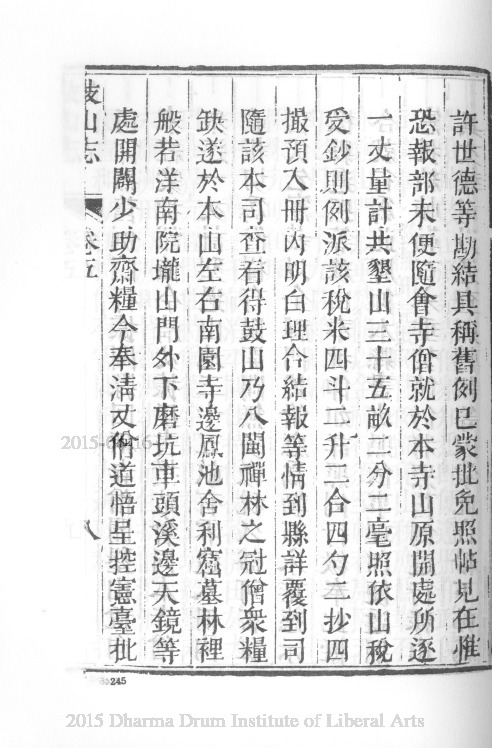 許世德等勘結具稱舊例已蒙批免照帖見在惟
恐報部未便隨會寺僧就於本寺山原開處所逐
一丈量計共墾山三十五畝二分二毫照依山稅
受鈔則例派該稅米四斗二升二合四勺二抄四
撮預入冊內明白理合結報等情到縣詳覆到司
隨該本司查看得鼓山乃八閩禪林之冠僧衆糧
缺遂於本山左右南園寺邊鳳池舍利窟墓林裡
般若洋南院壠山門外下磨坑車頭溪邊天鏡等
處開闢少助齋糧今奉淸丈僧道悟呈控憲臺批
鼓山志 卷五 八
245
2015 Dharma Drum Institute of Liberal Arts